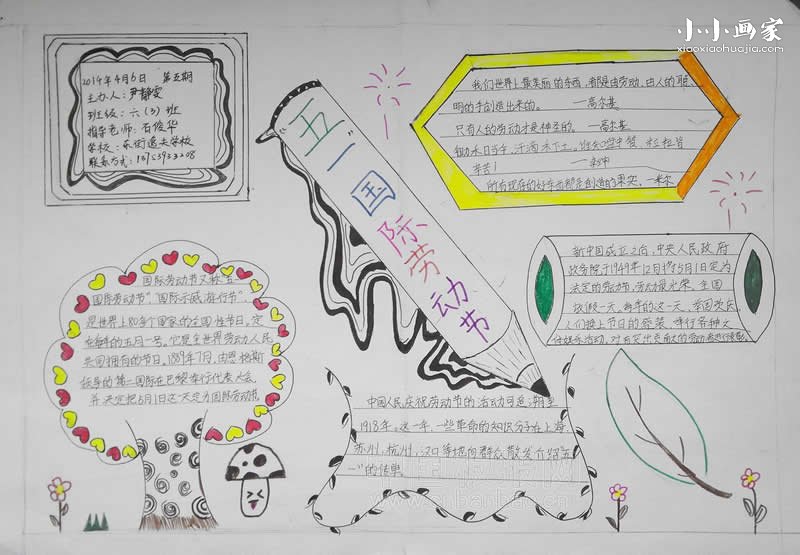 小小画家
xiaoxiaohuajia.com
2014年4月6日 第五期
主办人：尹静雯
班级：六（3）班
指导老师：石俊华
学校：东街逸夫学校
联系方式：13753933208
五一国际劳动节
我们世界上最美丽的东西，都是由劳动、由人的聪
明的手创造出来的。 —高尔基
只有人的劳动才是神圣的。 —高尔基
锄禾日当午，汗滴禾下土。谁知盘中餐，粒粒皆
辛苦！ —李绅
的有现存的好东西都是创造的果实。—米尔
新中国成立之后，中央人民政府
政务院于1949年12月将5月1日定为
法定的劳动节，劳动最光荣。全国
放假一天。每年的这一天，举国欢庆，
人们换上节日的盛装，
国际劳动节又称“五一
国际劳动节”“国际示威游行节”，
是世界上80多个国家的全国性节日。定
在每年的五月一号。它是全世界劳动人民
共同拥有的节日。1889年7月，由恩格斯
领导的第二国际在巴黎举行代表大会，
并决定把5月1日这一天定为国际劳动节。
中国人民庆祝劳动节的活动可追溯至
1918年。这一年，一些革命的知识分子在上海、
苏州、杭州、汉口等地向群众散发介绍“五
一”的传单。